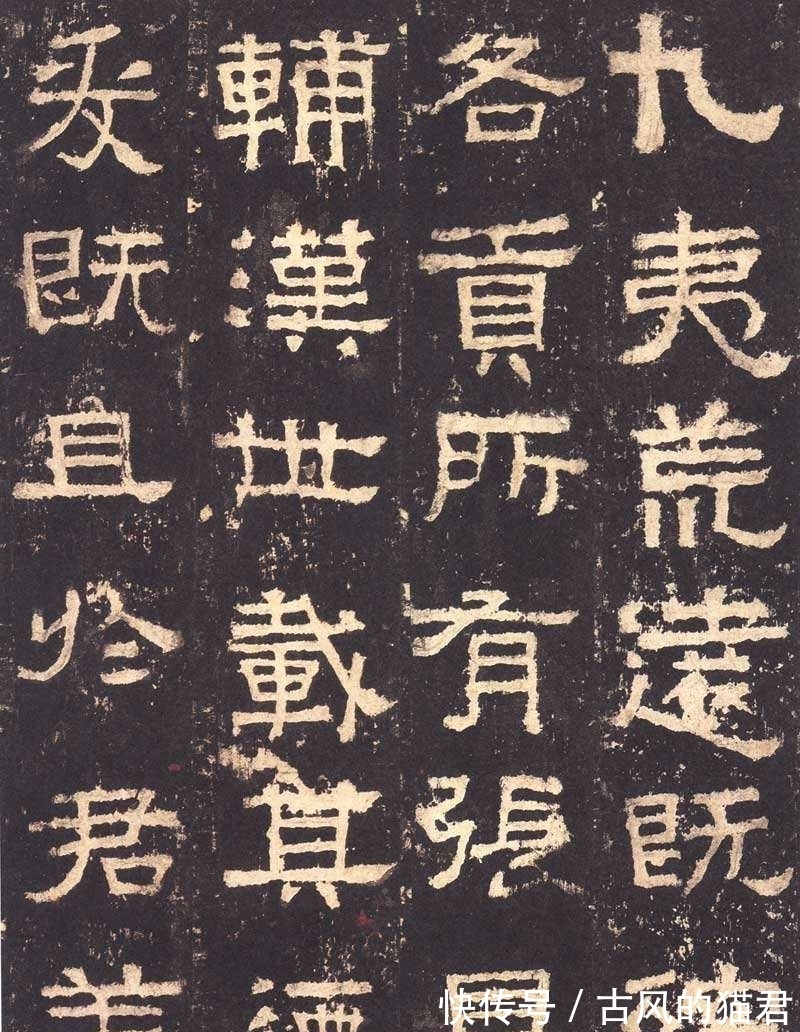 九夷荒遠既
各貢所有張
輔漢世載其
爰既且於君
快传号 / 古风的猫君